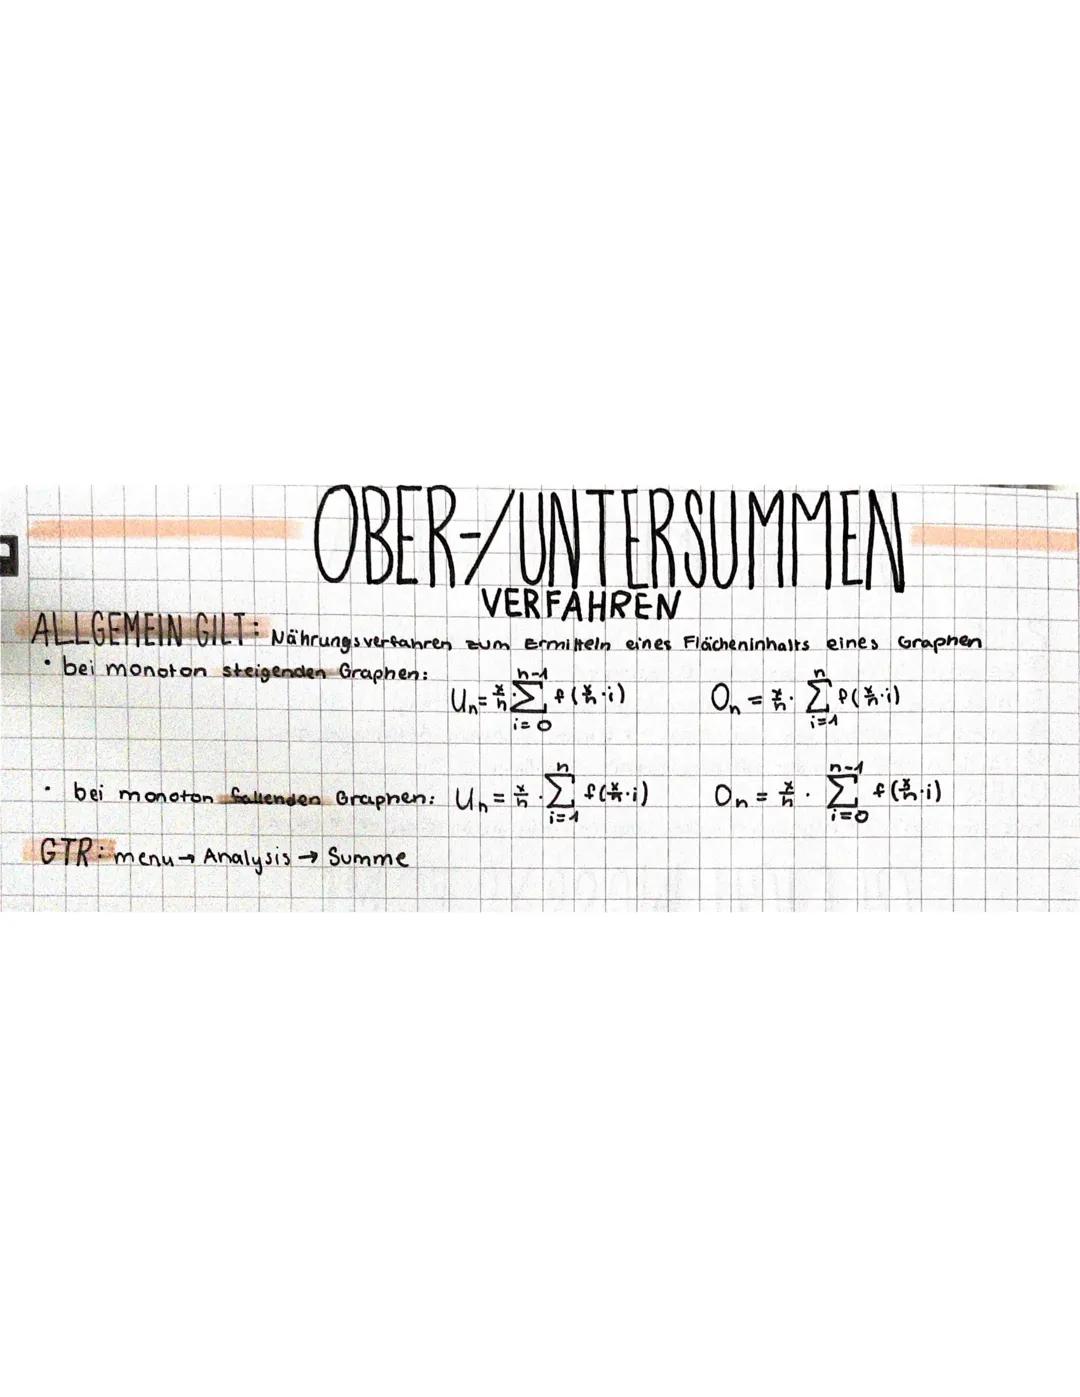 OBER-/UNTERSUMMEN
VERFAHREN
ALLGEMEIN GILT: Nährungsverfahren zum Ermitteln eines Flächeninhalts eines Graphen
• bei monoton steigenden Graphen: Uₙ = x/n · ∑_{i=0}^{n-1} f(x/n · i) Oₙ = x/n · ∑_{i=1}^{n} f(x/n · i)
• bei monoton fallenden Graphen: Uₙ = x/n · ∑_{i=1}^{n} f(x/n · i) Oₙ = x/n · ∑_{i=0}^{n-1} f(x/n · i)
GTR: menu → Analysis → Summe